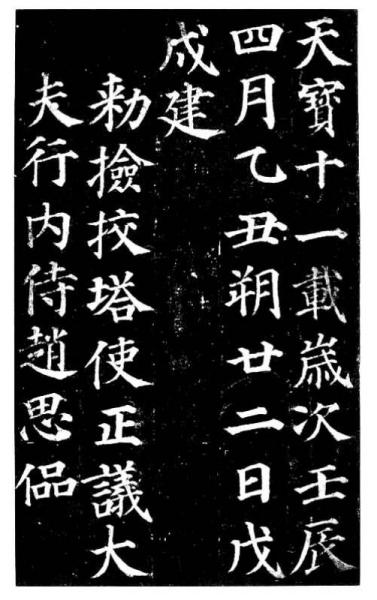 天寶十一載歲次壬辰
四月乙丑朔廿二日戊
戌建
勑撿挍塔使正議大
夫行内侍趙思偘